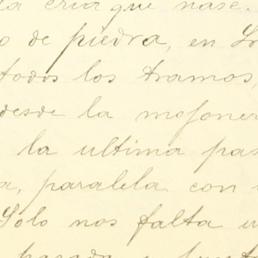 la cruz que nase.
o de piedra, en
todos los tramos,
desde la mojoner
la ultima pas
a, paralela con
Solo nos falta u
pasada